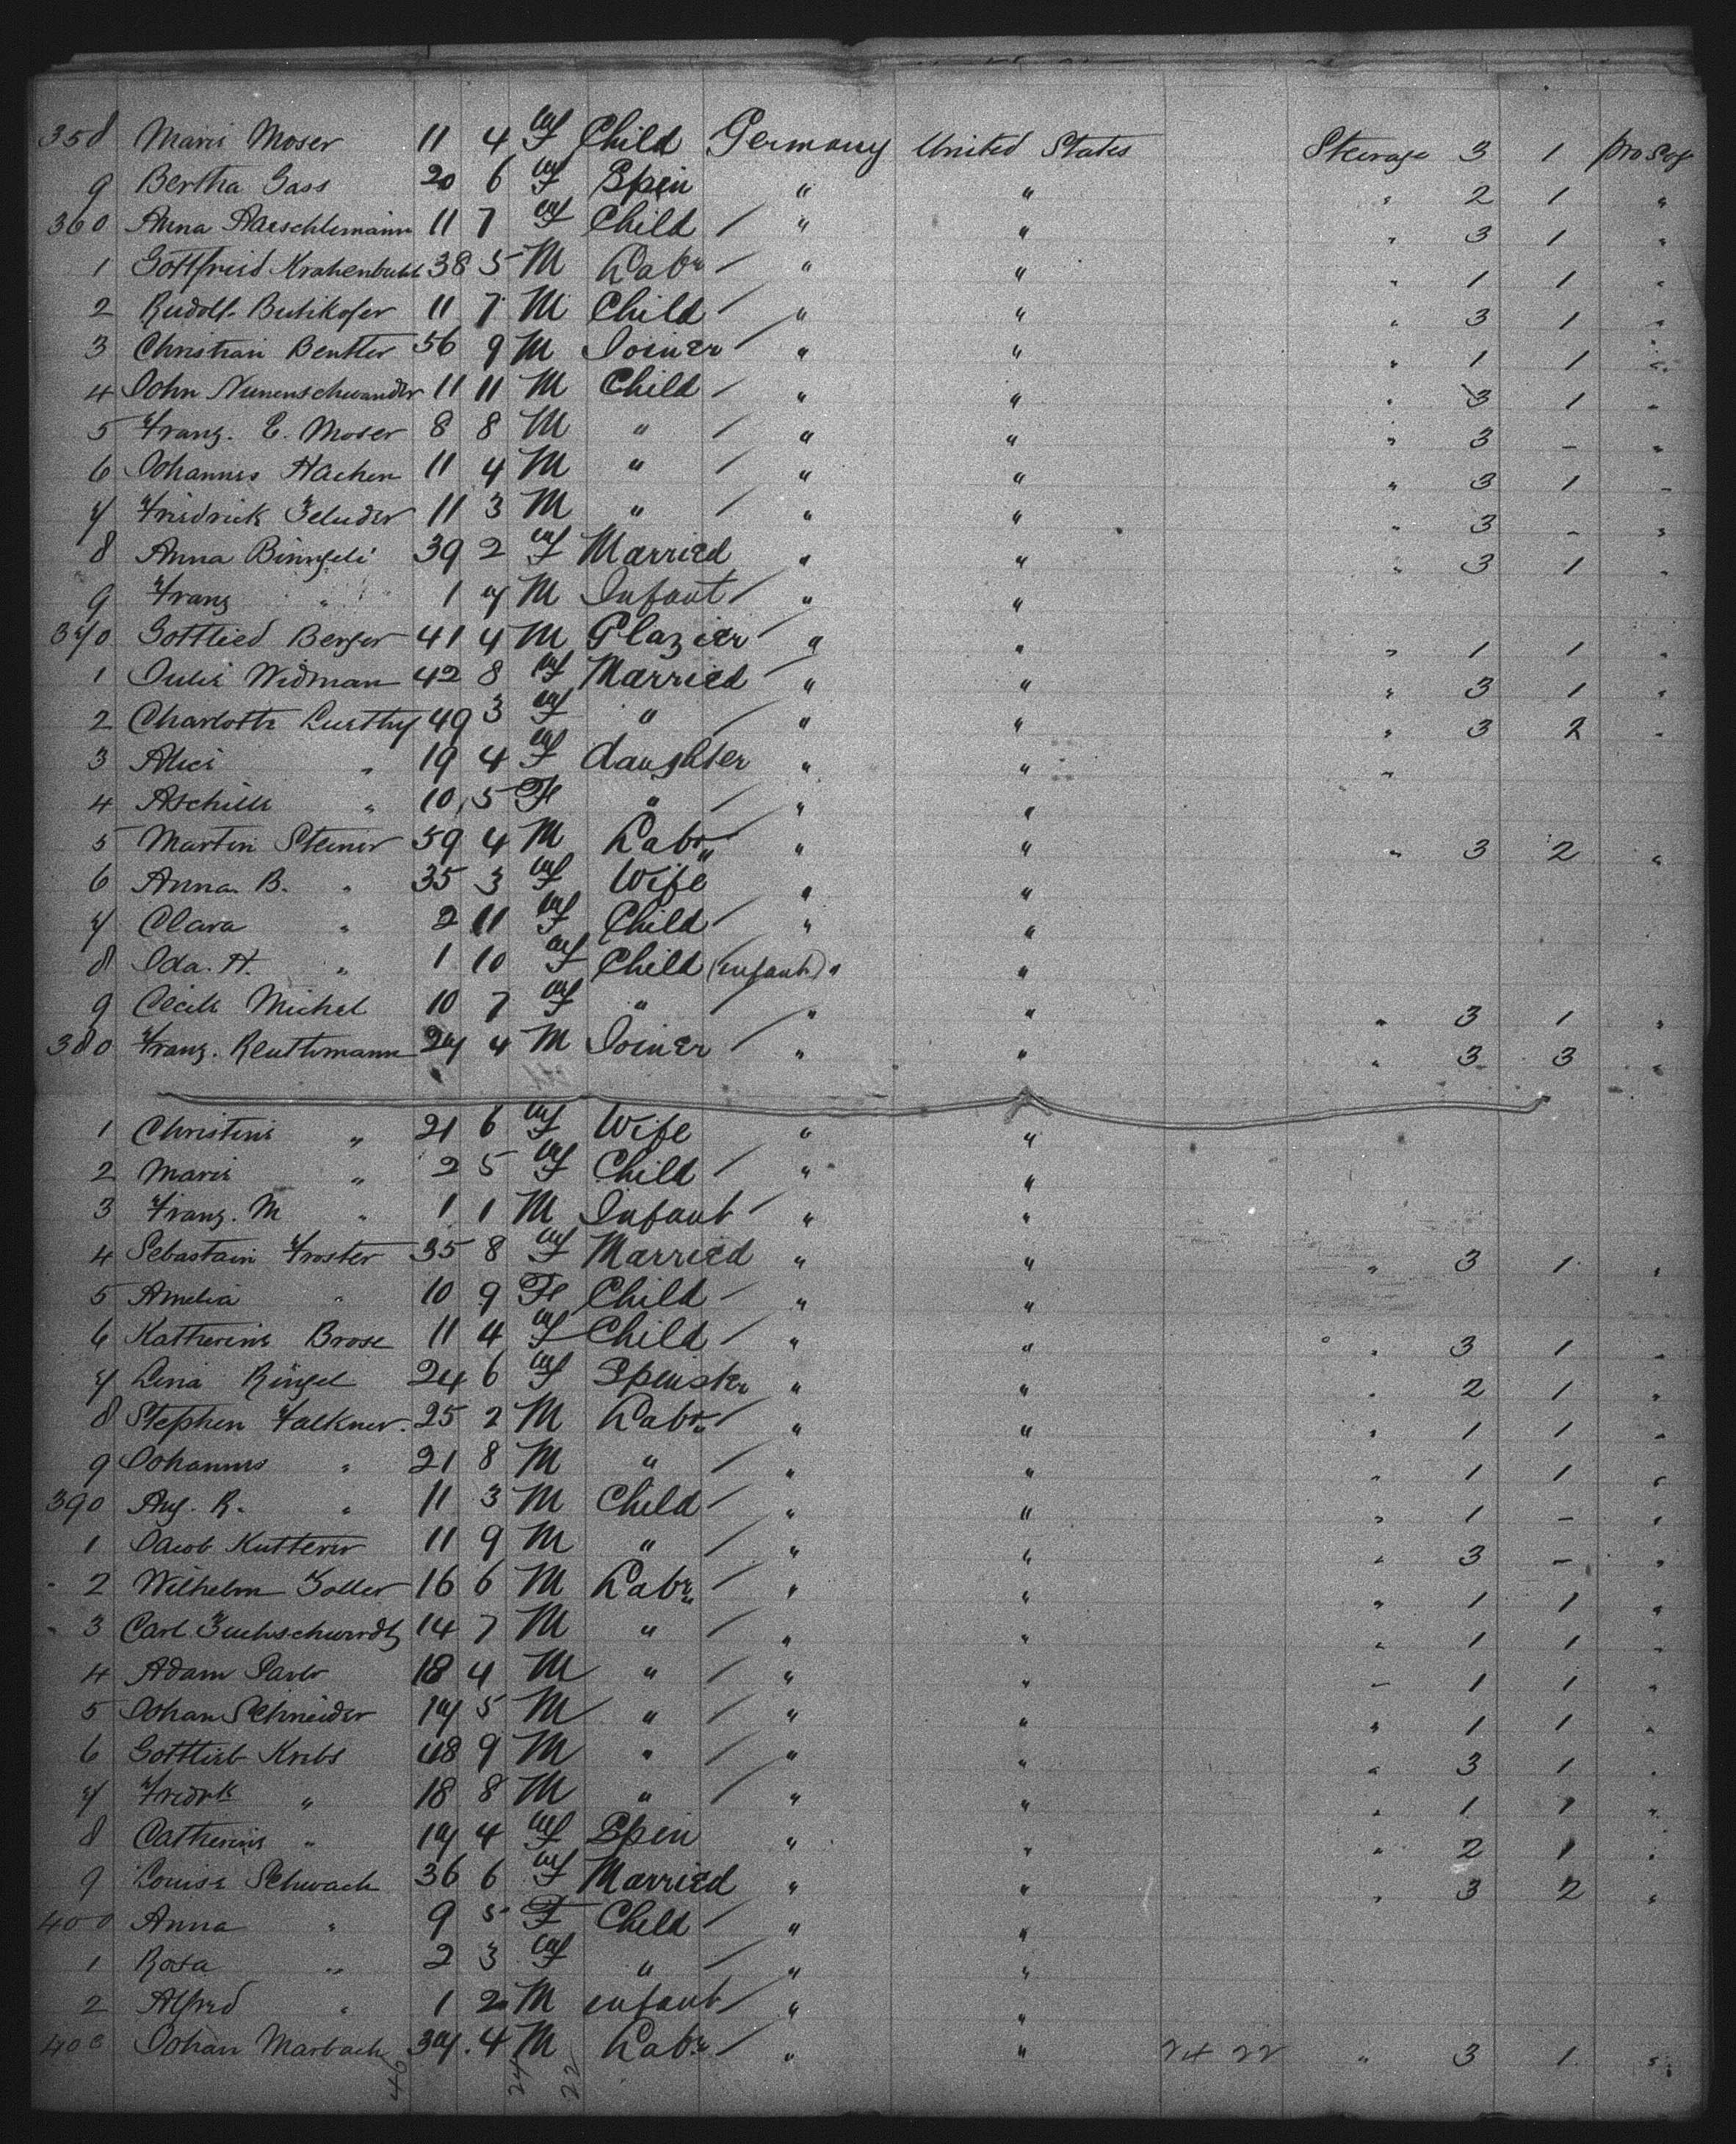 358 Marie Moser 11 4 F Child Germany United States Steerage 3 1 pro Soj
9 Bertha Gass 20 6 F Spin " " " 2 1 "
360 Anna Aaeschlemann 11 7 F Child / " " " 3 1 "
1 Gottfried Krahenbuhl 38 5 M Labr / " " " 1 1 "
2 Rudolf Buhkofer 11 7 M Child / " " " 3 1 "
3 Christian Bentler 56 9 M Joiner / " " " 1 1 "
4 John Nunenschwander 11 11 M Child / " " " 3 1 "
5 Franz. E. Moser 8 8 M " / " " " 3 – "
6 Johannes Hachen 11 4 M " / " " " 3 1 "
7 Friedrick Zeluder 11 3 M " / " " " 3 – "
8 Anna Binngeli 39 2 F Married " " " 3 1 "
9 Franz " 1 7 M Infant / " "
370 Gottlied Berger 41 4 M Glazier / " " " 1 1 "
1 Julie Widman 42 8 F Married / " " " 3 1 "
2 Charlotte Lusthy 49 3 F " / " " " 3 2 "
3 Alice " 19 4 F daughter " " "
4 Aschille " 10 5 Fe " / " "
5 Martin Steiner 59 4 M Labr / " " " 3 2 "
6 Anna B. " 35 3 F Wife " "
7 Clara " 2 11 F Child / " "
8 Ida. H. " 1 10 F Child (infant) " "
9 Cecile Michel 10 7 F " / " " " 3 1 "
380 Franz. Reuthmann 27 4 M Joiner / " " " 3 3 "
1 Christine " 21 6 F Wife " "
2 Marie " 2 5 F Child / " "
3 Franz. M " 1 1 M Infant / " "
4 Sebastain Froster 35 8 F Married " " " 3 1 "
5 Amelia " 10 9 Fe Child / " "
6 Katherine Brose 11 4 F Child / " " " 3 1 "
7 Lina Ringel 24 6 F Spinster " " " 2 1 "
8 Stephen Falkner. 25 2 M Labr / " " " 1 1 "
9 Johannes " 21 8 M " / " " " 1 1 "
390 Aug. R. " 11 3 M Child / " " " 1 – "
1 Jacob Kutterer 11 9 M " / " " " 3 – "
2 Wilhelm Zoller 16 6 M Labr / " " " 1 1 "
3 Carl 14 7 M " / " " " 1 1 "
4 Adam 18 4 M " / " " " 1 1 "
5 Johan Schneider 17 5 M " / " " " 1 1 "
6 Gottlieb Krebs 48 9 M " / " " " 3 1 "
7 Fredrk " 18 8 M " / " " " 1 1 "
8 Catherine " 17 4 F Spin " " " 2 1 "
9 Louise Schwach 36 6 F Married " " " 3 2 "
400 Anna " 9 5 F Child / " "
1 Rosa " 2 3 F " / " "
2 Alfred " 1 2 M infant / " "
403 Johan Marbach 37 4 M Labr / " " 24 22 " 3 1 "
46 24 22